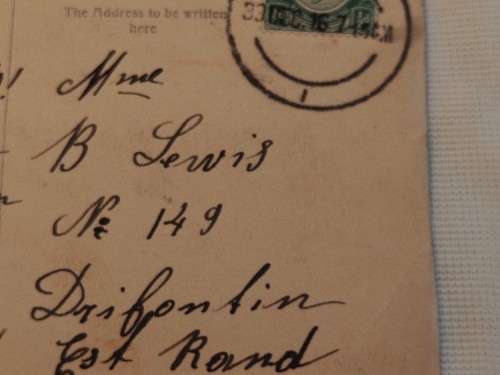 The Address to be written
here
Mme
B Lewis
No 149
Drifontin
Est Rand